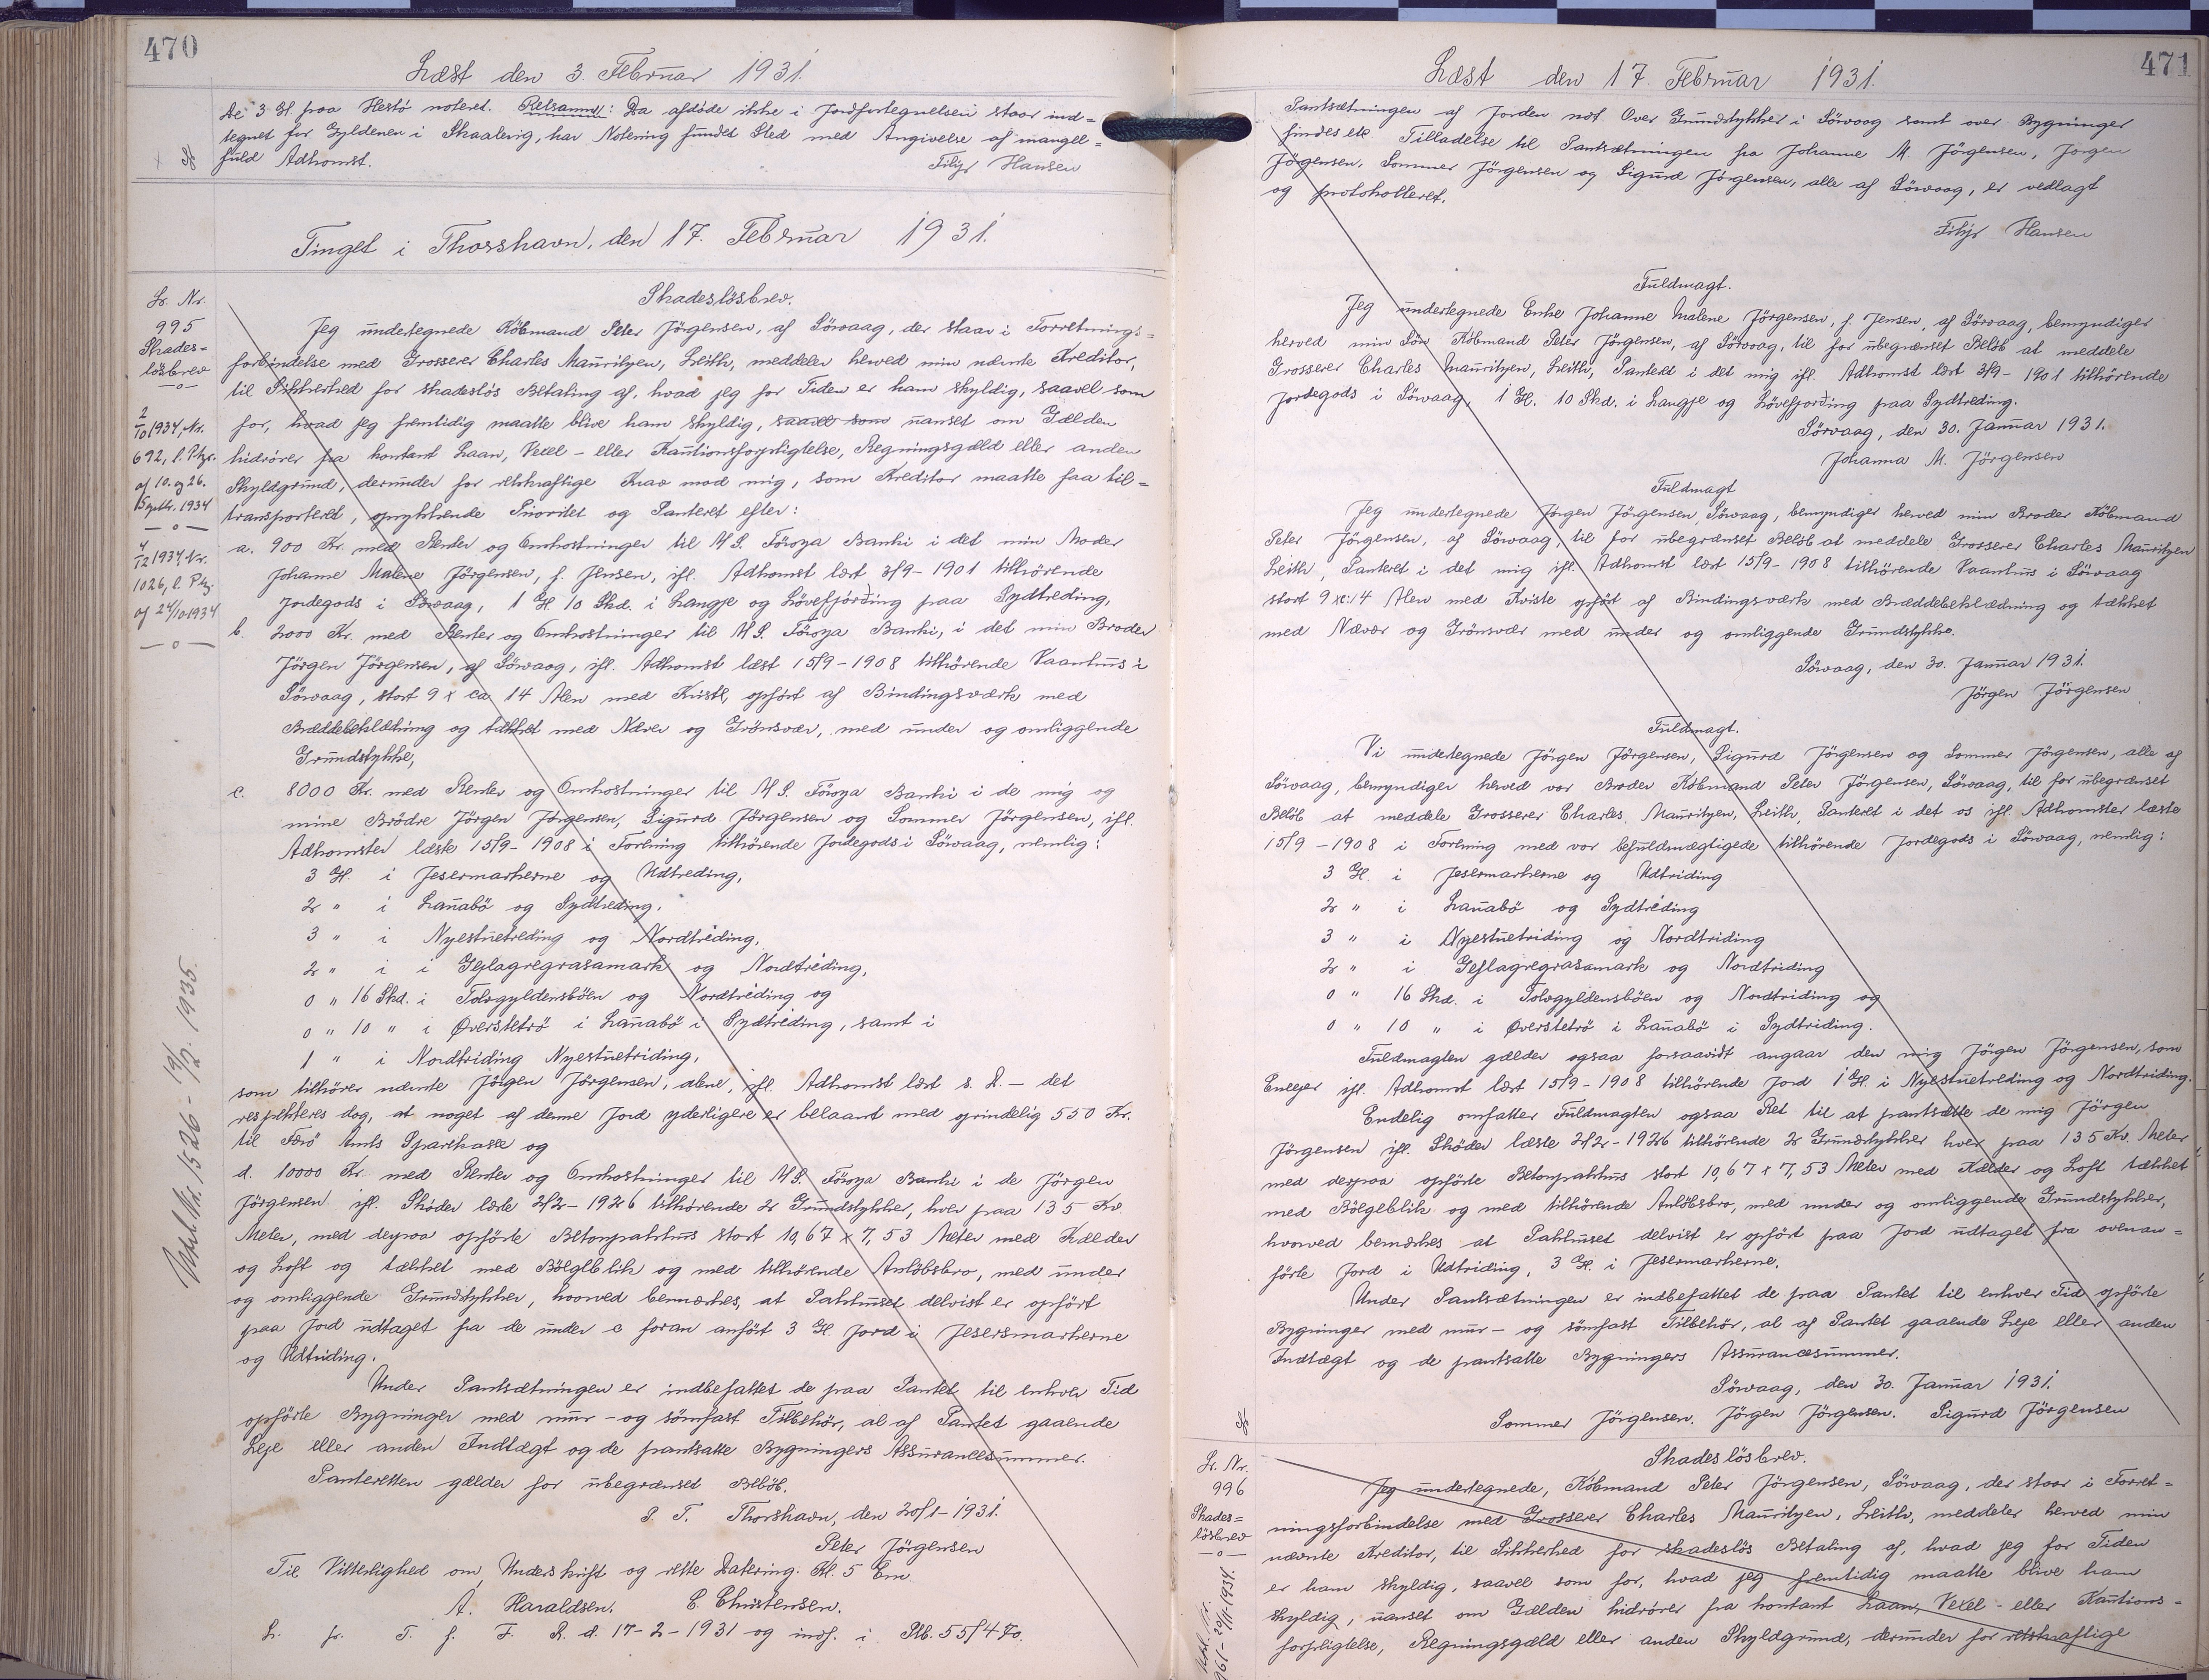 470
Læst den 3. Februar 1931.
Ae 3 Gl. paa Hestø noteret. Retsanm.: Da afdøde ikke i Jordfortegnelsen staar ind=
tegnet for Gyldenen i Skaalevig, har Notering fundet Sted med Angivelse af mangel=
fuld Adkomst.
Filip Hansen
Tinget i Thorshavn, den 17. Februar 1931.
Lr. Nr.
995
Skades=
løsbrev
—o—
2/10 1934, Nr.
692, l. Ptgs.
af 10. og 26.
Septbr. 1934
—o—
4/12 1934, Nr.
1026, l. Ptg.
af 24/10 1934
—o—
Udsl. Nr. 1526 - 19/12. 1935.
Skadesløsbrev.
Jeg undertegnede Købmand Peter Jörgensen, af Sörvaag, der staar i Forretnings=
forbindelse med Grosserer Charles Mauritzen, Leith, meddeler herved min nævnte Kreditor,
til Sikkerhed for skadesløs Betaling af, hvad jeg for Tiden er ham skyldig, saavel som
for, hvad jeg fremtidig maatte blive ham skyldig, saavel som uanset om Gælden
hidrører fra kontant Laan, Vexel- eller Kautionsforpligtelse, Regningsgæld eller anden
Skyldgrund, derunder for retskraftige Krav mod mig, som Kreditor maatte faa til=
transporteret, oprykkende Prioritet og Panteret efter:
a. 900 Kr. med Renter og Omkostninger til A/S. Föroya Banki i det min Moder
Johanne Malene Jörgensen, f. Jensen, ifl. Adkomst læst 3/9-1901 tilhørende
Jordegods i Sörvaag, 1 Gl. 10 Skd. i Langje og Lövefjörding paa Sydtreding,
b. 2000 Kr. med Renter og Omkostninger til A/S. Föroya Banki, i det min Broder
Jörgen Jörgensen, af Sörvaag, ifl. Adkomst læst 15/9-1908 tilhørende Vaanhus i
Sörvaag, stort 9 x ca 14 Alen med Kviste, opført af Bindingsværk med
Bræddebeklædning og tækket med Næver og Grönsvær, med under og omliggende
Grundstykke,
c. 8000 Kr. med Renter og Omkostninger til A/S. Föroya Banki i de mig og
mine Brødre Jörgen Jörgensen, Sigurd Jörgensen og Sommer Jörgensen, ifl.
Adkomster læste 15/9-1908 i Forening tilhørende Jordegods i Sörvaag, nemlig:
3 Gl. i Jesermarkerne og Udtreding,
2 " i Lanabö og Sydtreding,
3 " i Nyestuetreding og Nordtréding,
2 " i i Gejlagregrasamark og Nordtréding,
0 " 16 Skd. i Tolvgyldensböen og Nordtréding og
0 " 10 " i Øverstetrö i Lanabö i Sydtréding, samt i
1 " i Nordtriding Nyestuetriding,
som tilhører nævnte Jörgen Jörgensen, alene, ifl. Adkomst læst s. D. — det
respekteres dog, at noget af denne Jord yderligere er belaant med oprindelig 550 Kr.
til Færø Amts Sparekasse og
d. 10000 Kr. med Renter og Omkostninger til A/S. Föroya Banki i de Jörgen
Jörgensen ifl. Skøder læste 2/2-1926 tilhørende 2 Grundstykker, hver paa 135 Kv.
Meter, med derpaa opførte Betonpakhus stort 10,67 x 7,53 Meter med Kælder
og Loft og tækket med Bölgeblik og med tilhørende Anløbsbro, med under
og omliggende Grundstykker, hvorved bemærkes, at Pakhuset delvist er opført
paa Jord udtaget fra de under c foran anført 3 Gl. Jord i Jesersmarkerne
og Udtriding.
Under Pantsætningen er indbefattet de paa Pantet til enhver Tid
opførte Bygninger med mur- og sømfast Tilbehør, al af Pantet gaaende
Leje eller anden Indtægt og de pantsatte Bygningers Assurancesummer.
Panteretten gælder for ubegrænset Beløb.
P. T. Thorshavn, den 20/1-1931.
Peter Jörgensen
Til Vitterlighed om Underskrift og rette Datering. Kl. 5 Em.
A. Haraldsen. C. Christensen.
L. fr. T. f. F. R. d. 17-2-1931 og indf. i Ptb. 55/470.
471
Læst den 17. Februar 1931.
Pantsætningen af Jorden not. Over Grundstykker i Sörvaag samt over Bygninger
findes etc. Tilladelse til Pantsætningen fra Johanne M. Jörgensen, Jørgen
Jörgensen, Sommer Jörgensen og Sigurd Jörgensen, alle af Sörvaag, er vedlagt
og protokolleret.
Filip Hansen
Fuldmagt.
Jeg undertegnede Enke Johanne Malene Jörgensen, f. Jensen, af Sörvaag, bemyndiger
herved min Søn Købmand Peter Jörgensen, af Sörvaag, til for ubegrænset Beløb at meddele
Grosserer Charles Mauritzen, Leith, Panteret i det mig ifl. Adkomst læst 3/9-1901 tilhørende
Jordegods i Sörvaag, 1 Gl. 10 Skd. i Langje og Lövefjording paa Sydtreding.
Sörvaag, den 30. Januar 1931.
Johanna M. Jörgensen
Fuldmagt
Jeg undertegnede Jørgen Jörgensen, Sörvaag, bemyndiger herved min Broder Købmand
Peter Jörgensen, af Sörvaag, til for ubegrænset Beløb at meddele Grosserer Charles Mauritzen
Leith, Panteret i det mig ifl. Adkomst læst 15/9-1908 tilhørende Vaanhus i Sörvaag
stort 9 x c: 14 Alen med Kviste opført af Bindingsværk med Bræddebeklædning og tækket
med Næver og Grönsvær med under og omliggende Grundstykke.
Sörvaag, den 30. Januar 1931.
Jörgen Jörgensen
Fuldmagt.
Vi undertegnede Jörgen Jörgensen, Sigurd Jörgensen og Sommer Jörgensen, alle af
Sörvaag, bemyndiger herved vor Broder Købmand Peter Jörgensen, Sörvaag, til for ubegrænset
Beløb at meddele Grosserer Charles Mauritzen, Leith, Panteret i det os ifl. Adkomster læste
15/9-1908 i Forening med vor befuldmægtigede tilhørende Jordegods i Sörvaag, nemlig:
3 Gl. i Jesermarkerne og Udtriding
2 " i Lanabö og Sydtréding
3 " i Nyestuetriding og Nordtriding
2 " i Gejlagregrasamark og Nordtriding
0 " 16 Skd. i Tolvgyldensböen og Nordtriding og
0 " 10 " i Øverstetrö i Lanabö i Sydtriding.
Fuldmagten gælder ogsaa forsaavidt angaar den mig Jörgen Jörgensen, som
Eneejer ifl. Adkomst læst 15/9-1908 tilhørende Jord 1 Gl. i Nyestuetreding og Nordtriding.
Endelig omfatter Fuldmagten ogsaa Ret til at pantsætte de mig Jörgen
Jörgensen ifl. Skøder læste 2/2-1926 tilhørende 2 Grundstykker hver paa 135 Kv. Meter
med derpaa opførte Betonpakhus stort 10,67 x 7,53 Meter med Kælder og Loft tækket
med Bölgeblik og med tilhørende Anløbsbro, med under og omliggende Grundstykker,
hvorved bemærkes at Pakhuset delvist er opført paa Jord udtaget fra ovenan=
førte Jord i Udtriding, 3 Gl. i Jesermarkerne.
Under Pantsætningen er indbefattet de paa Pantet til enhver Tid opførte
Bygninger med mur- og sømfast Tilbehør, al af Pantet gaaende Leje eller anden
Indtægt og de pantsatte Bygningers Assurancesummer.
Sörvaag, den 30. Januar 1931.
Sommer Jörgensen. Jörgen Jörgensen. Sigurd Jörgensen
Lr. Nr.
996
Skades=
løsbrev
—o—
Udsl. Nr.
961 - 21/11. 1934.
Skadesløsbrev.
Jeg undertegnede, Købmand Peter Jörgensen, Sörvaag, der staar i Forret=
ningsforbindelse med Grosserer Charles Mauritzen, Leith, meddeler herved min
nævnte Kreditor, til Sikkerhed for skadesløs Betaling af, hvad jeg for Tiden
er ham skyldig, saavel som for, hvad jeg fremtidig maatte blive ham
skyldig, uanset om Gælden hidrører fra kontant Laan, Vexel- eller Kautions=
forpligtelse, Regningsgæld eller anden Skyldgrund, derunder for retskraftige